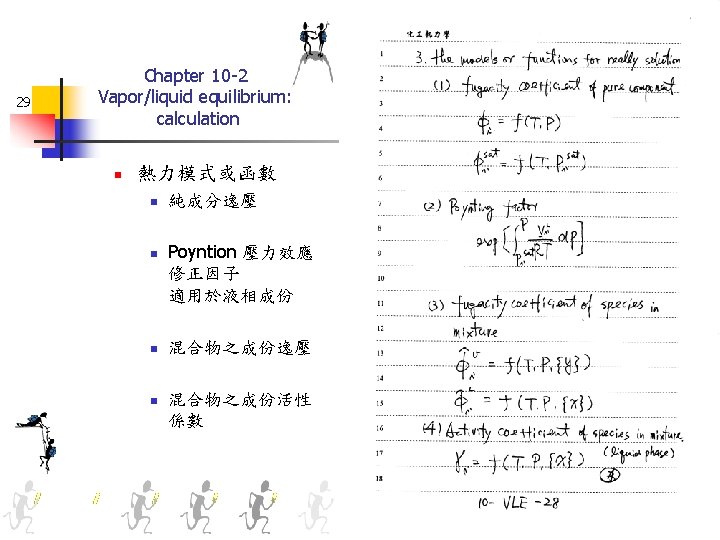 29
Chapter 10-2
Vapor/liquid equilibrium:
calculation
熱力模式或函數
純成分逸壓
Poyntion 壓力效應
修正因子
適用於液相成份
混合物之成份逸壓
混合物之成份活性
係數
化工熱力學
1
3. the models or functions for really solution
2
(1) fugacity coefficient of pure component
3
4
ϕᵢ = f(T, P)
5
ϕᵢ^sat = f(T, Pᵢ^sat)
6
7
(2) Poynting factor
8
9
exp[∫_{Pᵢ^sat}^{P} Vᵢ/RT dP]
10
11
(3) fugacity coefficient of species in
12
mixture
13
ϕ̂ᵢ^v = f(T, P, {y})
14
15
ϕ̂ᵢ^L = f(T, P, {x})
16
(4) Activity coefficient of species in mixture
17
(liquid phase)
γᵢ = f(T, P, {x})
18
10-VLE-28